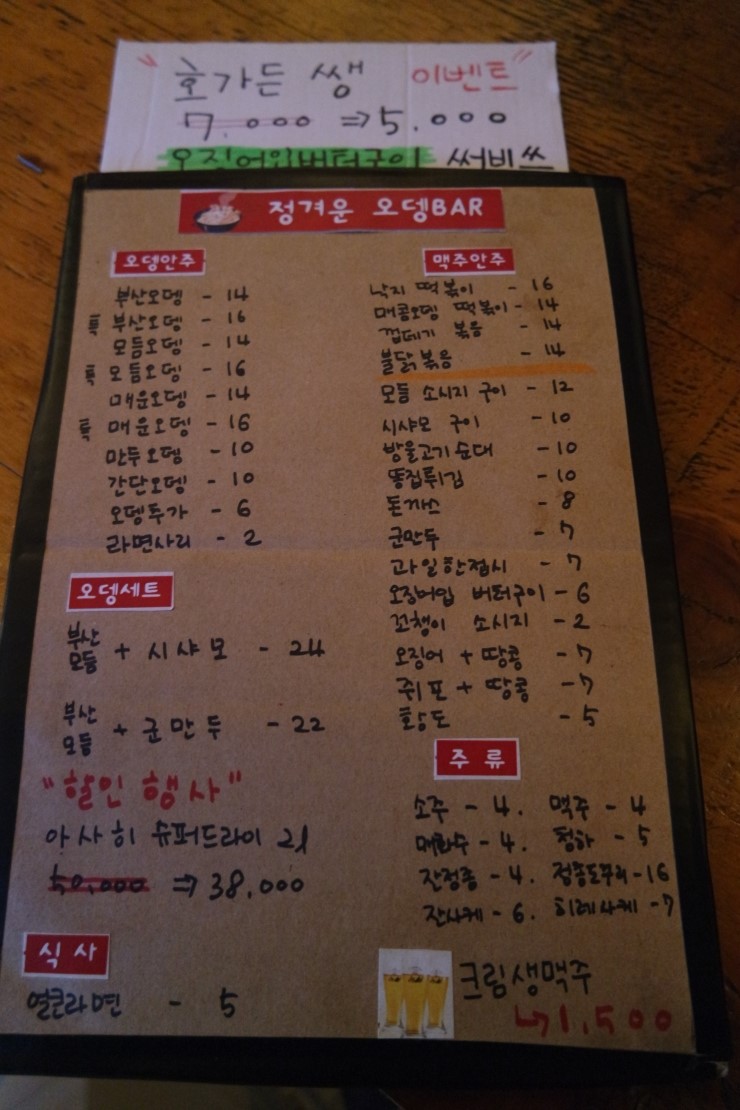 "호가든 쌩 이벤트"
7.000 ⇒ 5.000
오징어입버터구이 써비쓰
정겨운 오뎅BAR
오뎅안주
부산오뎅 - 14
특 부산오뎅 - 16
모듬오뎅 - 14
특 모듬오뎅 - 16
매운오뎅 - 14
특 매운오뎅 - 16
만두오뎅 - 10
간단오뎅 - 10
오뎅투가 - 6
라면사리 - 2
오뎅세트
부산
모듬 + 시샤모 - 24
부산
모듬 + 군만두 - 22
"할인 행사"
아사히 슈퍼드라이 2l
50,000 ⇒ 38,000
식사
얼큰라면 - 5
맥주안주
낙지 떡볶이 - 16
매콤오뎅 떡볶이 - 14
껍데기 볶음 - 14
불닭볶음 - 14
모듬 소시지 구이 - 12
시샤모 구이 - 10
방울고기순대 - 10
똥집튀김 - 10
돈까스 - 8
군만두 - 7
과일한접시 - 7
오징어입 버터구이 - 6
꼬챙이 소시지 - 2
오징어 + 땅콩 - 7
쥐포 + 땅콩 - 7
황도 - 5
주류
소주 - 4. 맥주 - 4
매화수 - 4. 청하 - 5
잔정종 - 4. 정종도쿠리 - 16
잔사케 - 6. 히레사케 - 7
크림생맥주
↳ 1,500